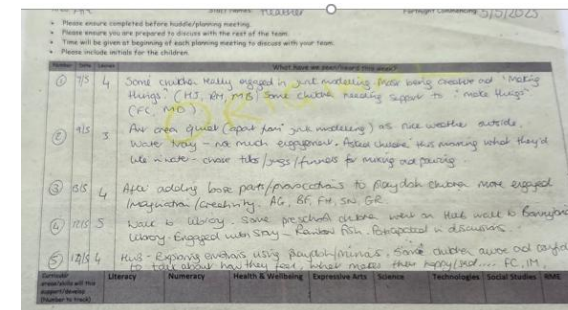 Heather
Fortnight Commencing 5/5/2025
Please ensure completed before huddle/planning meeting.
Please ensure you are prepared to discuss with the rest of the team.
Time will be given at beginning of each planning meeting to discuss with your team.
Please include initials for the children.
Number Date Leuven What have we seen/heard this week?
① 7/5 4 Some children really engaged in junk modelling. Most being creative and "making
things" (HJ, RH, MB) Some children needing support to "make things"
(FC, MB)
② 9/5 3 Art area quiet (apart from junk modelling) as nice weather outside.
Water tray – not much engagement. Asked children this morning what they'd
like in water – chose tubs/jugs/funnels for mixing and pouring
③ 13/5 4 After adding loose parts/provocations to playdoh children more engaged
/imagination/creativity. AG, BF, FH, SN, GR
④ 5 Walk to library. Some preschool children went on walk to
library. Engaged with story – Rainbow Fish. Participated in discussions.
⑤ 4 Exploring emotions using playdoh/mirrors. Some children aware and
to talk about how they feel, what makes them happy/sad.... FC, IM,
Curricular areas/skills will this support/develop (Number to track)
Literacy Numeracy Health & Wellbeing Expressive Arts Science Technologies Social Studies RME